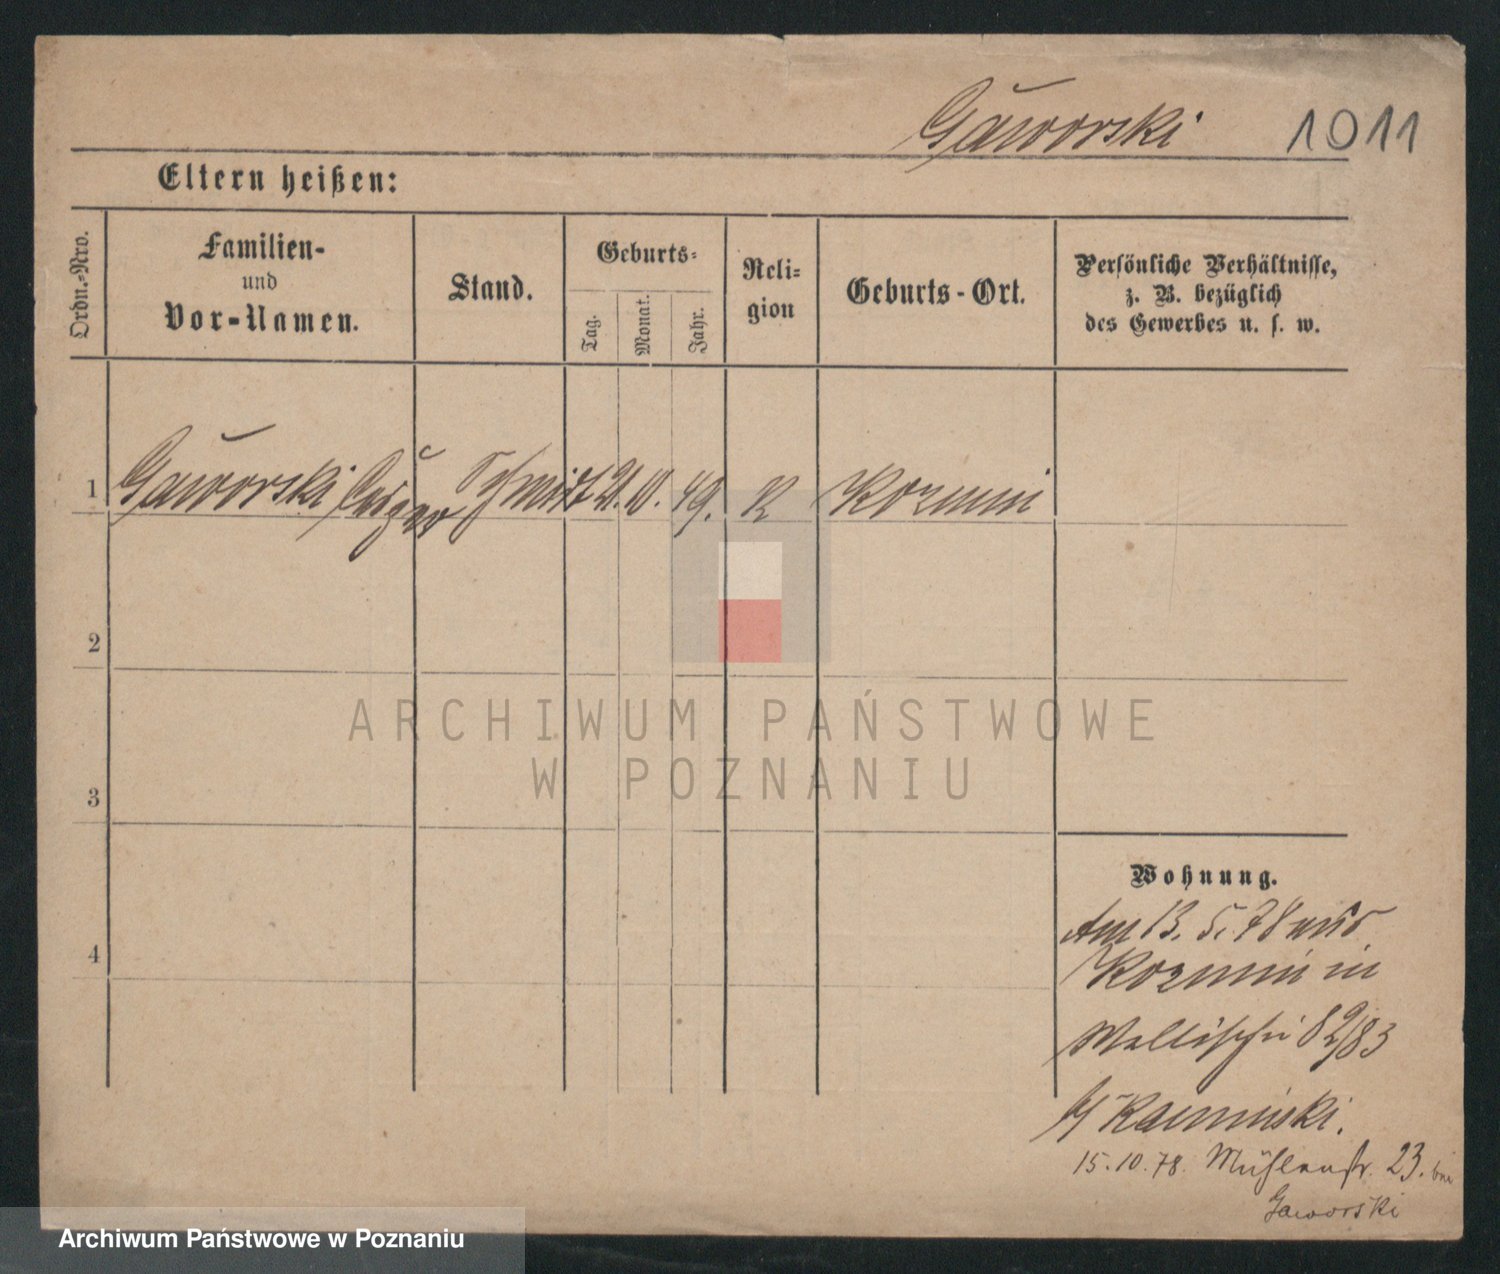 Gaworski 1011
Eltern heißen:
Ordn.-Nro.
Familien-
und
Vor-Namen.
Stand.
Geburts-
Tag.
Monat.
Jahr.
Reli-
gion
Geburts-Ort.
Persönliche Verhältnisse,
z. B. bezüglich
des Gewerbes u. s. w.
1 Gaworski Schmidt 49. K Kozmin
2
3
4
ARCHIWUM PAŃSTWOWE
W POZNANIU
Wohnung.
Am 13. 5. 78 aus
Kozmin in
Wallischei 82/83
b/ Kaminski.
15.10.78. Mühlenstr. 23. bei
Gaworski
Archiwum Państwowe w Poznaniu